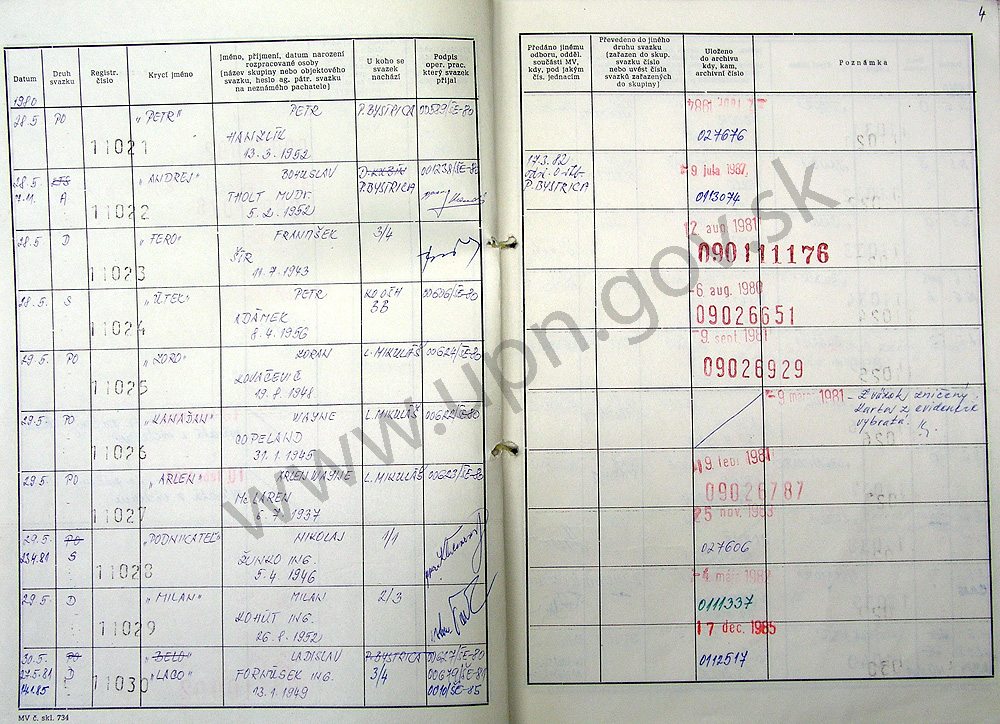 4
Datum
Druh svazku
Registr. číslo
Krycí jméno
Jméno, příjmení, datum narození rozpracované osoby (název skupiny nebo objektového svazku, heslo ag. pátr. svazku na neznámého pachatele)
U koho se svazek nachází
Podpis oper. prac. který svazek přijal
Předáno jinému odboru, odděl. součásti MV, kdy, pod jakým čís. jednacím
Převedeno do jiného druhu svazku (zařazen do skup. svazku číslo nebo uvést čísla svazků zařazených do skupiny)
Uloženo do archivu kdy, kam, archivní číslo
Poznámka
1980
28.5 PO 11021 „PETR" PETR P. BYSTRICA 00589/ŠE-80
HANZLÍK
13.3.1952
027676
28.5. 11022 „ANDREJ" BOHUSLAV 001238/ŠE-80
A THOLT MUDr. P. BYSTRICA
5.2.1952
17.3.82
P. BYSTRICA
9 júla 1987
0113074
28.5 D 11023 „FERO" FRANTIŠEK 3/4
ŠÍR
11.7.1943
12 aug 1981
090111176
28.5. S 11024 PETR
ADÁMEK BB
8.4.1956
-6 aug. 1980
09026651
29.5 PO 11025 „ZORO" ZORAN L. MIKULÁŠ 00624/ŠE-80
KOVAČEVIČ
19.8.1948
9. sept. 1981
09026929
29.5. PO 11026 „KANAĎAN" WAYNE L. MIKULÁŠ 00622/ŠE-80
COPELAND
31.1.1945
-9 marca 1981 - Zväzok zničený.
Kartot. z evidencie
vybratá.
29.5 PO 11027 „ARLEN" ARLEN WAYNE L. MIKULÁŠ 00623/ŠE-80
McLAREN
6.7.1937
19. febr. 1981
09026787
29.5. PO 11028 „PODNIKATEĽ" MIKOLAJ 1/1
23.4.81 S ŽUNKO ING.
5.4.1946
25 nov. 1983
027606
29.5 D 11029 „MILAN" MILAN 2/3
KOHÚT ING.
26.8.1952
0111337
30.5. PO 11030 „BELO" LADISLAV P. BYSTRICA 00627/ŠE-80
27.5.81 D „LACO" 3/4 00679/ŠE-81
14.1.85 13.1.1949 0010/ŠE-85
17 dec. 1985
0112517
MV č. skl. 734
www.upn.gov.sk